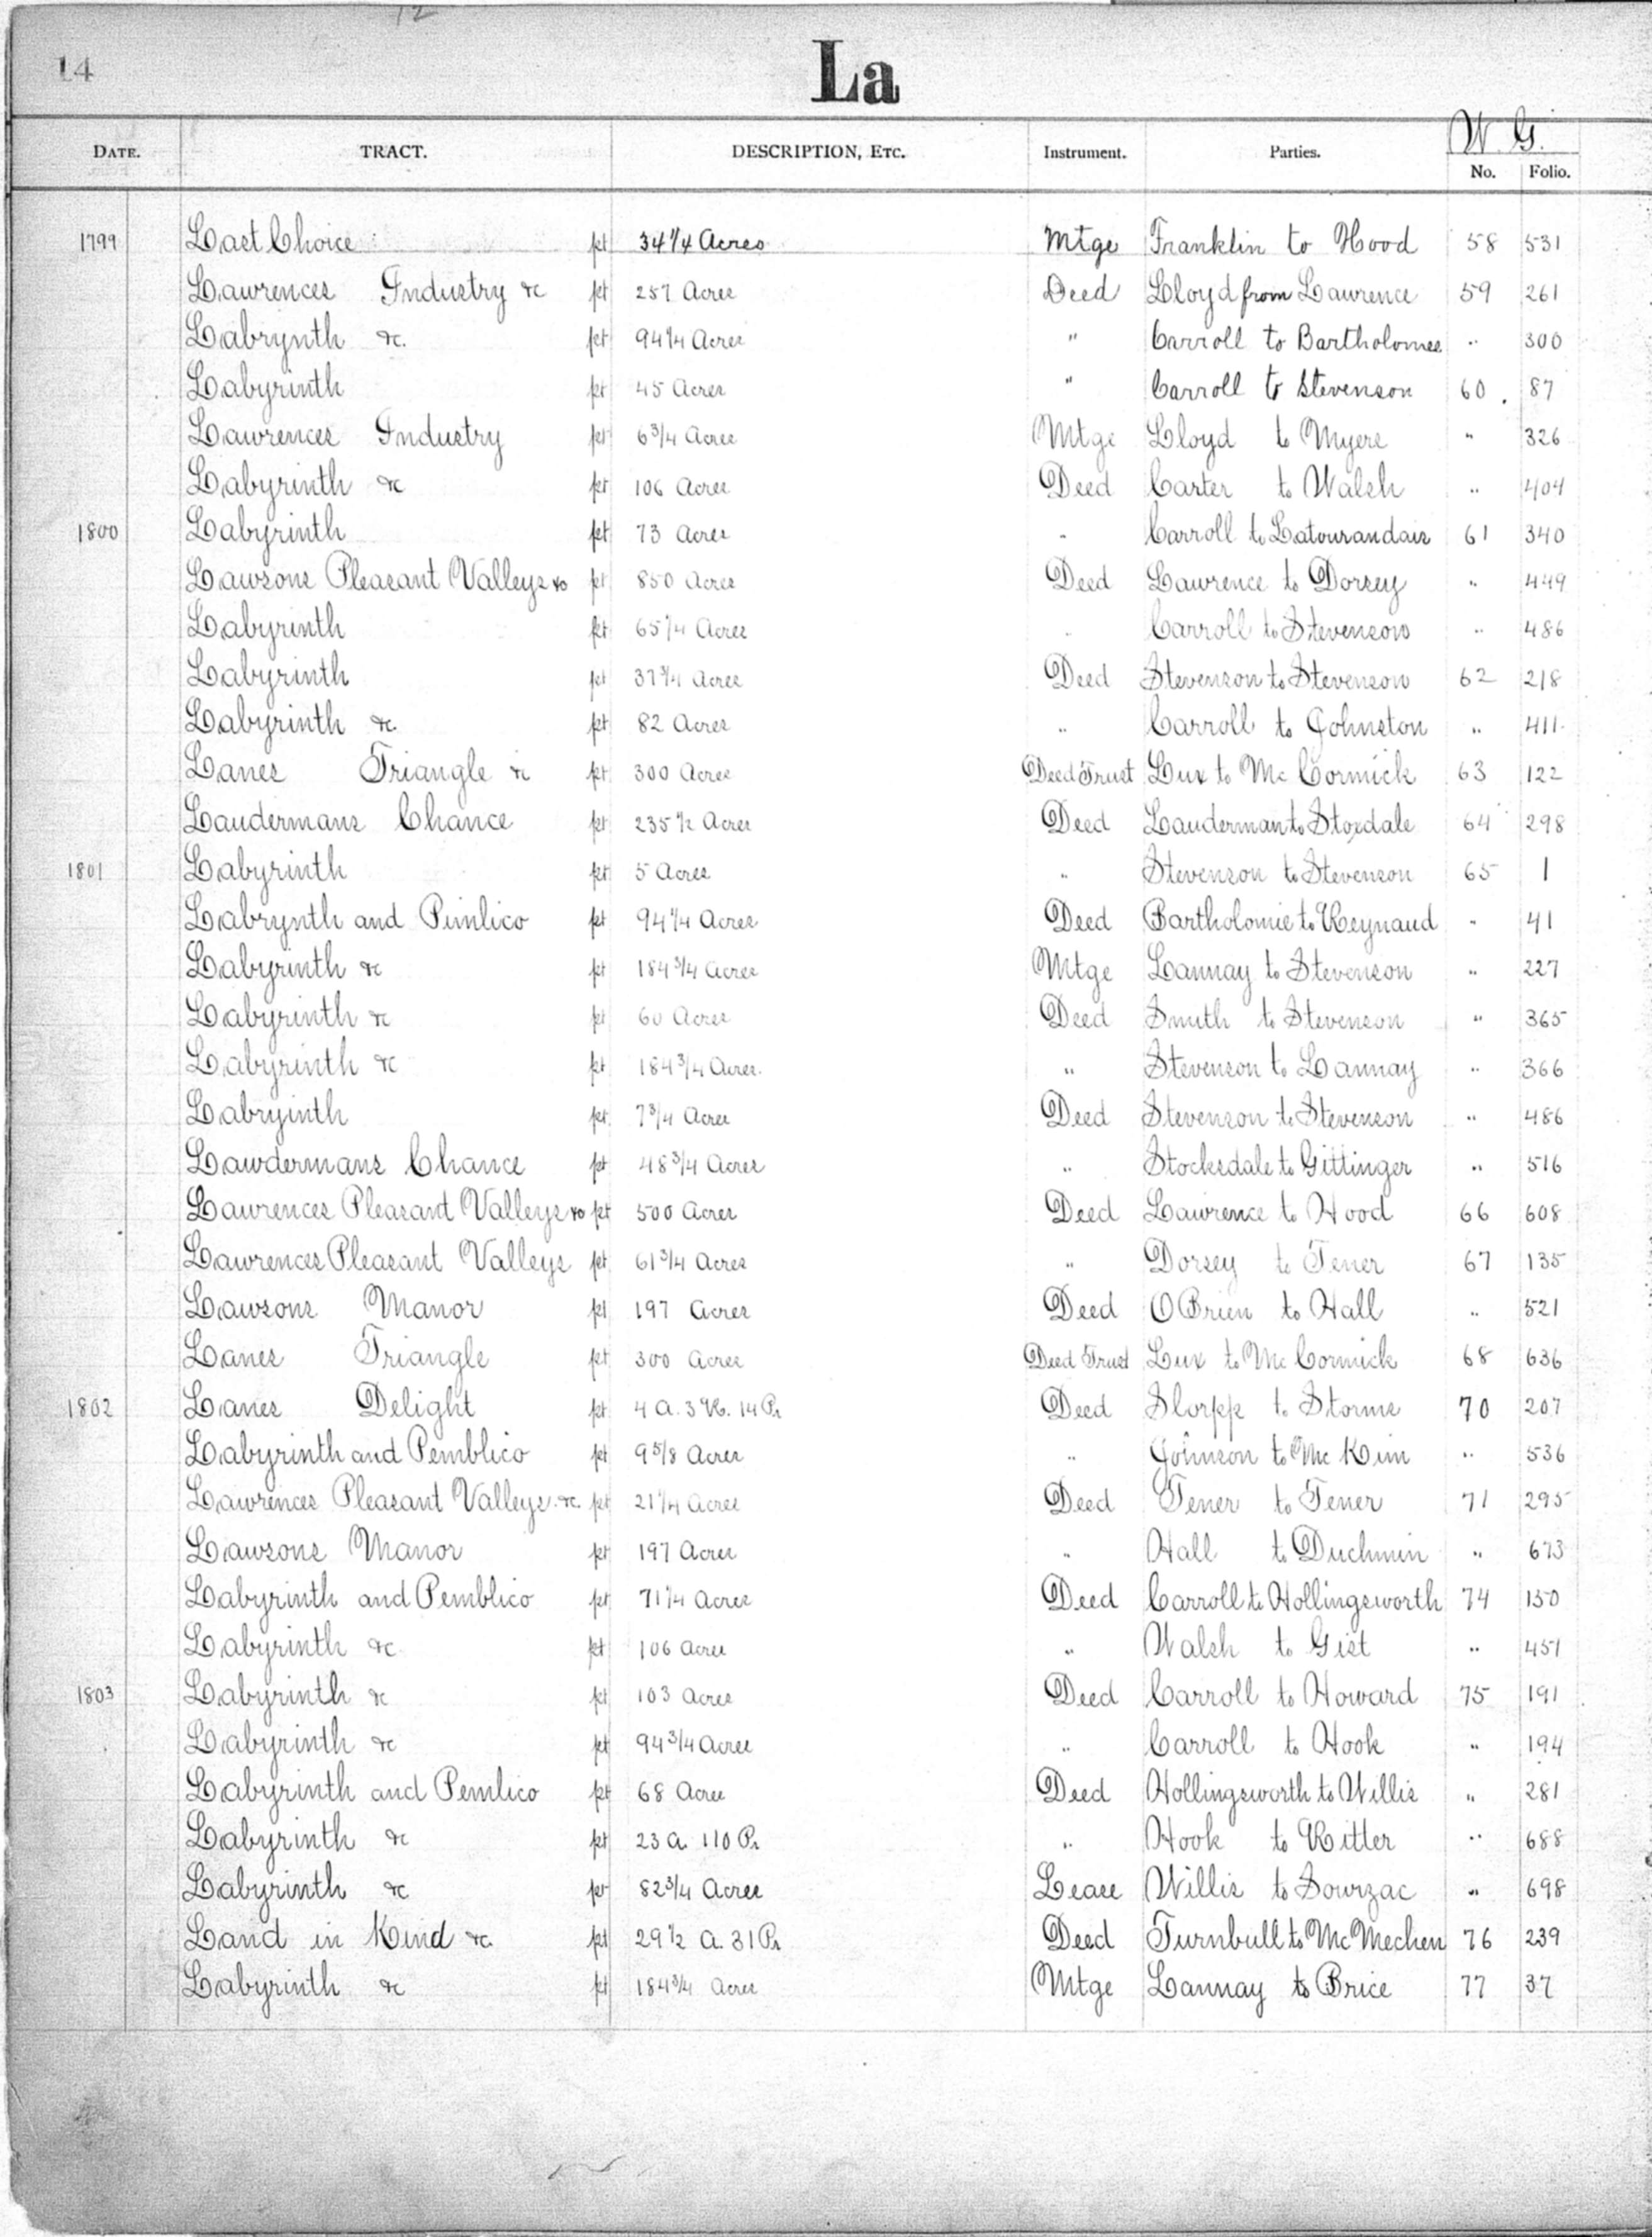 12
14
La
W. G.
DATE. TRACT. DESCRIPTION, ETC. Instrument. Parties. No. Folio.
1799 Last Choice pt 34 1/4 Acres Mtge Franklin to Hood 58 531
Lawrences Industry &c pt 257 Acres Deed Lloyd from Lawrence 59 261
Labrynth &c. pt 94 1/4 Acres " Carroll to Bartholomee " 300
Labyrinth pt 45 Acres " Carroll to Stevenson 60 . 87
Lawrences Industry pt 6 3/4 Acres Mtge Lloyd to Myers " 326
Labyrinth &c pt 106 Acres Deed Carter to Walsh " 404
1800 Labyrinth pt 73 Acres " Carroll to Latourandais 61 340
Lawsons Pleasant Valleys &c pt 850 Acres Deed Lawrence to Dorsey " 449
Labyrinth pt 65 1/4 Acres " Carroll to Stevenson " 486
Labyrinth pt 37 3/4 Acres Deed Stevenson to Stevenson 62 218
Labyrinth &c pt 82 Acres " Carroll to Johnston " 411
Lanes Triangle &c pt 300 Acres Deed Trust Lux to Mc Cormick 63 122
Laudermans Chance pt 235 1/2 Acres Deed Lauderman to Stoxdale 64 298
1801 Labyrinth pt 5 Acres " Stevenson to Stevenson 65 1
Labrynth and Pimlico pt 94 1/4 Acres Deed Bartholomie to Reynaud " 41
Labyrinth &c pt 184 3/4 Acres Mtge Lannay to Stevenson " 227
Labyrinth &c pt 60 Acres Deed Smith to Stevenson " 365
Labyrinth &c pt 184 3/4 Acres. " Stevenson to Lannay " 366
Labryinth pt 7 3/4 Acres Deed Stevenson to Stevenson " 486
Lawdermans Chance pt 48 3/4 Acres " Stocksdale to Gittinger " 516
Lawrences Pleasant Valleys &c pt 500 Acres Deed Lawrence to Hood 66 608
Lawrences Pleasant Valleys pt 61 3/4 Acres " Dorsey to Tener 67 135
Lawsons Manor pt 197 Acres Deed OBrien to Hall " 521
Lanes Triangle pt 300 Acres Deed Trust Lux to Mc Cormick 68 636
1802 Lanes Delight pt 4 A. 3 R. 14 Pr Deed Slorpp to Storms 70 207
Labyrinth and Pemblico pt 9 5/8 Acres " Johnson to Mc Kim " 536
Lawrences Pleasant Valleys &c. pt 21 1/4 Acres Deed Tener to Tener 71 295
Lawsons Manor pt 197 Acres " Hall to Duchmin " 673
Labyrinth and Pemblico pt 71 1/4 Acres Deed Carroll to Hollingsworth 74 150
Labyrinth &c pt 106 Acres " Walsh to Gist " 451
1803 Labyrinth &c pt 103 Acres Deed Carroll to Howard 75 191
Labyrinth &c pt 94 3/4 Acres " Carroll to Hook " 194
Labyrinth and Pemlico pt 68 Acres Deed Hollingsworth to Willis " 281
Labyrinth &c pt 23 A. 110 Pr " Hook to Ritter " 688
Labyrinth &c pt 82 3/4 Acres Lease Willis to Sourzac " 698
Land in Kind &c. pt 29 1/2 A. 31 Pr Deed Turnbull to Mc Mechen 76 239
Labyrinth &c pt 184 3/4 Acres Mtge Lannay to Brice 77 37